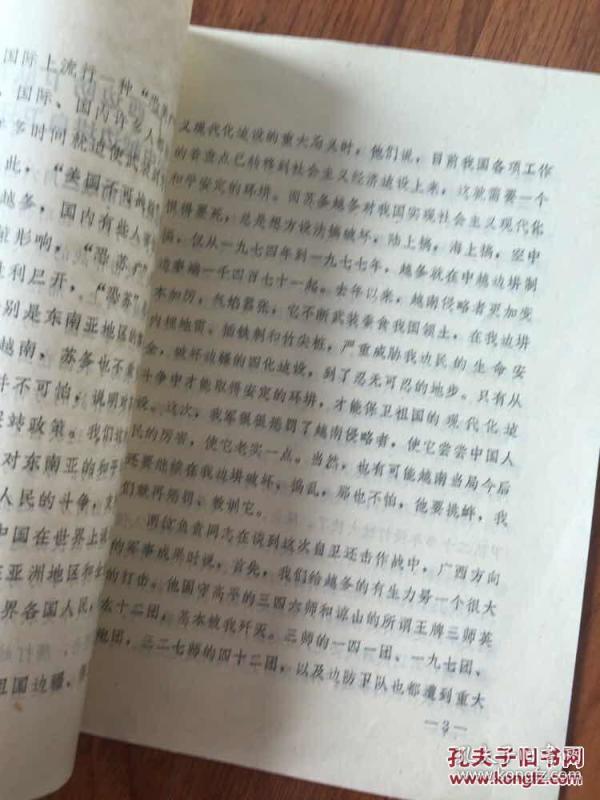 国际上流行一种“恐苏
国际、国内许多人
多时间就迫使武装
此，“美国不可
越务，国内有些人
形响，“恐苏”
利层开，“恐苏”
别是东南亚地区的
越南，苏务也不
并不可怕，说明对
绥靖政策。我们
对东南亚的和平
人民的斗争，
中国在世界上
亚洲地区和
界各国人民，
祖国边疆、
义现代化迠设的重大局义时，他们说，目前我国各项工作
的着重点已转移到社会主义经济迠设上来，这就需要一个
和平安定的环圸。而苏务越务对我国实现社会主义现代化
惧得要死，总是想方设法搞破坏，陆上搞，海上搞，空中
搞，仅从一九七四年到一九七七年，越务就在中越边圸制
边事端一千四百七十一起。去年以来，越南侵略者更加变
本加厉，气焰嚣张，它不断武装蚕食我国领土，在我边圸
内埋地雷、插铁刺和竹尖桩，严重威胁我边民的生命安
全，破坏边疆的四化迠设，到了忍无可忍的地步。只有从
斗争中才能取得安定的环圸，才能保卫祖国的现代化迠
设。这次，我军狠狠惩罚了越南侵略者，使它尝尝中国人
民的厉害，使它老实一点。当然，也有可能越南当局今后
还要继续在我边圸破坏、搞乱，那也不怕，他要挑衅，我
们就再惩罚、教训它。
两位负责同志在谈到这次自卫还击作战中，广西方向
的军事成果时说，首先，我们给越务的有生力量一个很大
的打击。他固守高平的三四六师和谅山的所谓王牌三师英
十二团，基本被我歼灭。三师的一四一团、一九七团、
炮团，三二七师的四十二团，以及边防卫队也都遭到重大
—3—
孔夫子旧书网
www.kongfz.com